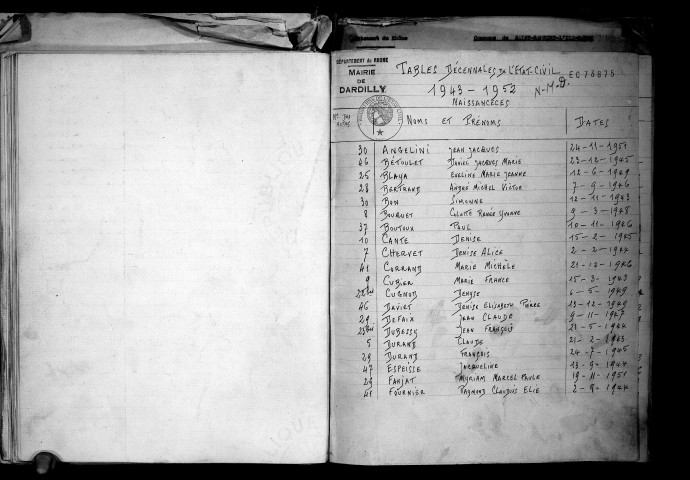 DÉPARTEMENT du RHONE
MAIRIE
DE
DARDILLY
TABLES DÉCENNALES DE L'ETAT-CIVIL
1943 - 1952 N-M-D.
NAISSANCES
NOMS ET PRÉNOMS DATES
30 ANGELINI JEAN JACQUES 24-11-1951
46 BÉTOULET DANIEL JACQUES MARIE 23-12-1945
25 BLAYA EVELINE MARIE JEANNE 12-6-1949
28 BERTRAND ANDRÉ MICHEL VICTOR 7-9-1946
30 BON SIMONNE 12-11-1943
8 BOUQUET COLETTE RENÉE YVONNE 9-3-1948
37 BOUTOUX PAUL 10-11-1946
10 CANTE DENISE 15-2-1945
7 CHERVET DENISE ALICE 2-2-1944
41 CORRAND MARIE MICHÈLE 21-12-1946
9 CUBIER MARIE FRANCE 15-3-1943
CUGNOD DENYSE 6-5-1949
46 DAVIET DENISE ELISABETH 13-12-1949
29 DEFAIX JEAN CLAUDE 9-11-1947
DUBESSY JEAN FRANÇOIS 21-5-1944
5 DURAND CLAUDE 21-2-1943
29 DURAND FRANÇOIS 24-7-1945
47 ESPEISSE JACQUELINE 13-9-1944
29 FARJAT MYRIAM MARCEL PAULE 19-11-1951
41 FOURNIER RAYMOND CLAUDIUS ELIE 2-8-1944